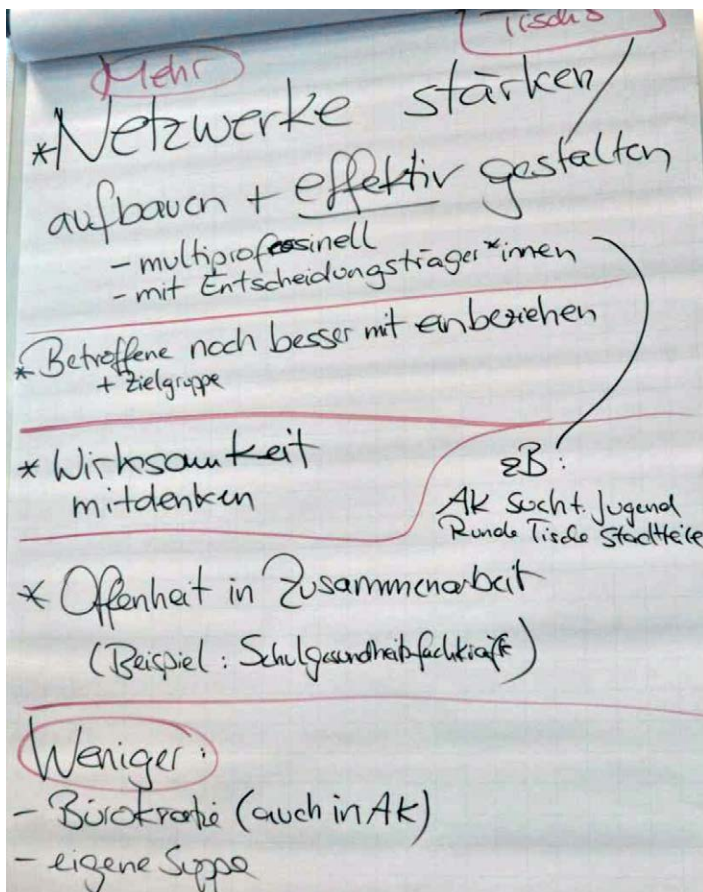 Tische
Mehr
*Netzwerke stärken
aufbauen + effektiv gestalten
- multiprofessinell
- mit Entscheidungsträger*innen
* Betroffene noch besser mit einbeziehen
+ Zielgruppe
* Wirksamkeit
mitdenken
zB:
AK Sucht. Jugend
Runde Tische Stadtteile
* Offenheit in Zusammenarbeit
(Beispiel: Schulgesundheitsfachkräft)
Weniger:
- Bürokratie (auch in AK)
- eigene Suppe